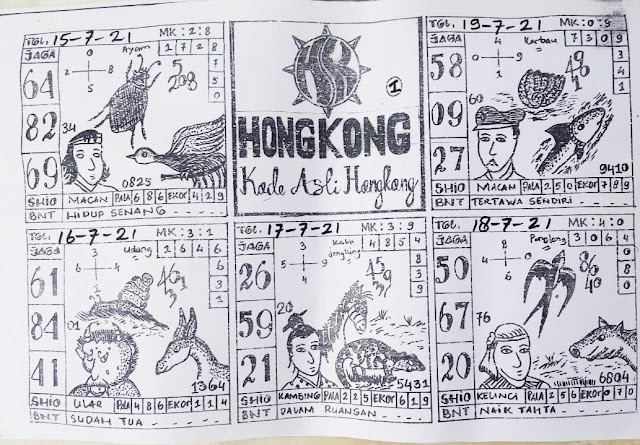 TGL. 15-7-21 MK: 2:8
JAGA 0 Ayam 1 7 2 8
2 8 5
64 7 5 0
5
208
82
34
69
0825
SHIO MACAN PALA 6 8 6 EKOR 4 2 9
BNT HIDUP SENANG
HK
1
HONGKONG
Kode Asli Hongkong
TGL. 19-7-21 MK: 0:9
JAGA 4 Kerbau 7 3 0 9
0 1 9
58 3 4 1
48
1
09 60
27
9410
SHIO MACAN PALA 2 5 0 EKOR 7 9 9
BNT TERTAWA SENDIRI
TGL. 16-7-21 MK: 3:1
JAGA 3 Udang 2 6 4 6
3 6 4
61 6 3 1
84 01
41
1364
SHIO ULAR PALA 4 8 6 EKOR 1 1 4
BNT SUDAH TUA
TGL. 17-7-21 MK: 3:9
JAGA 4 8 5 4
26 3 9
59 20
21
5431
SHIO KAMBING PALA 2 2 5 EKOR 6 1 9
BNT DALAM RUANGAN
TGL. 18-7-21 MK: 4:0
JAGA 8 3 0 6 4
4 0 6
50 6 0 0
86
40
67 76
20
6804
SHIO KELINCI PALA 5 6 2 EKOR 0 7 0
BNT NAIK TAHTA